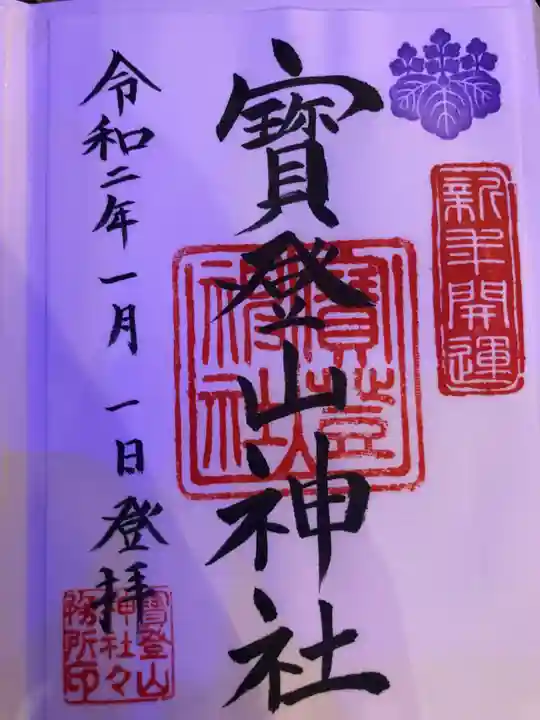 新年開運
寳登山神社
寳登山
神社
令和二年一月一日登拝
寳登山
神社々
務所印